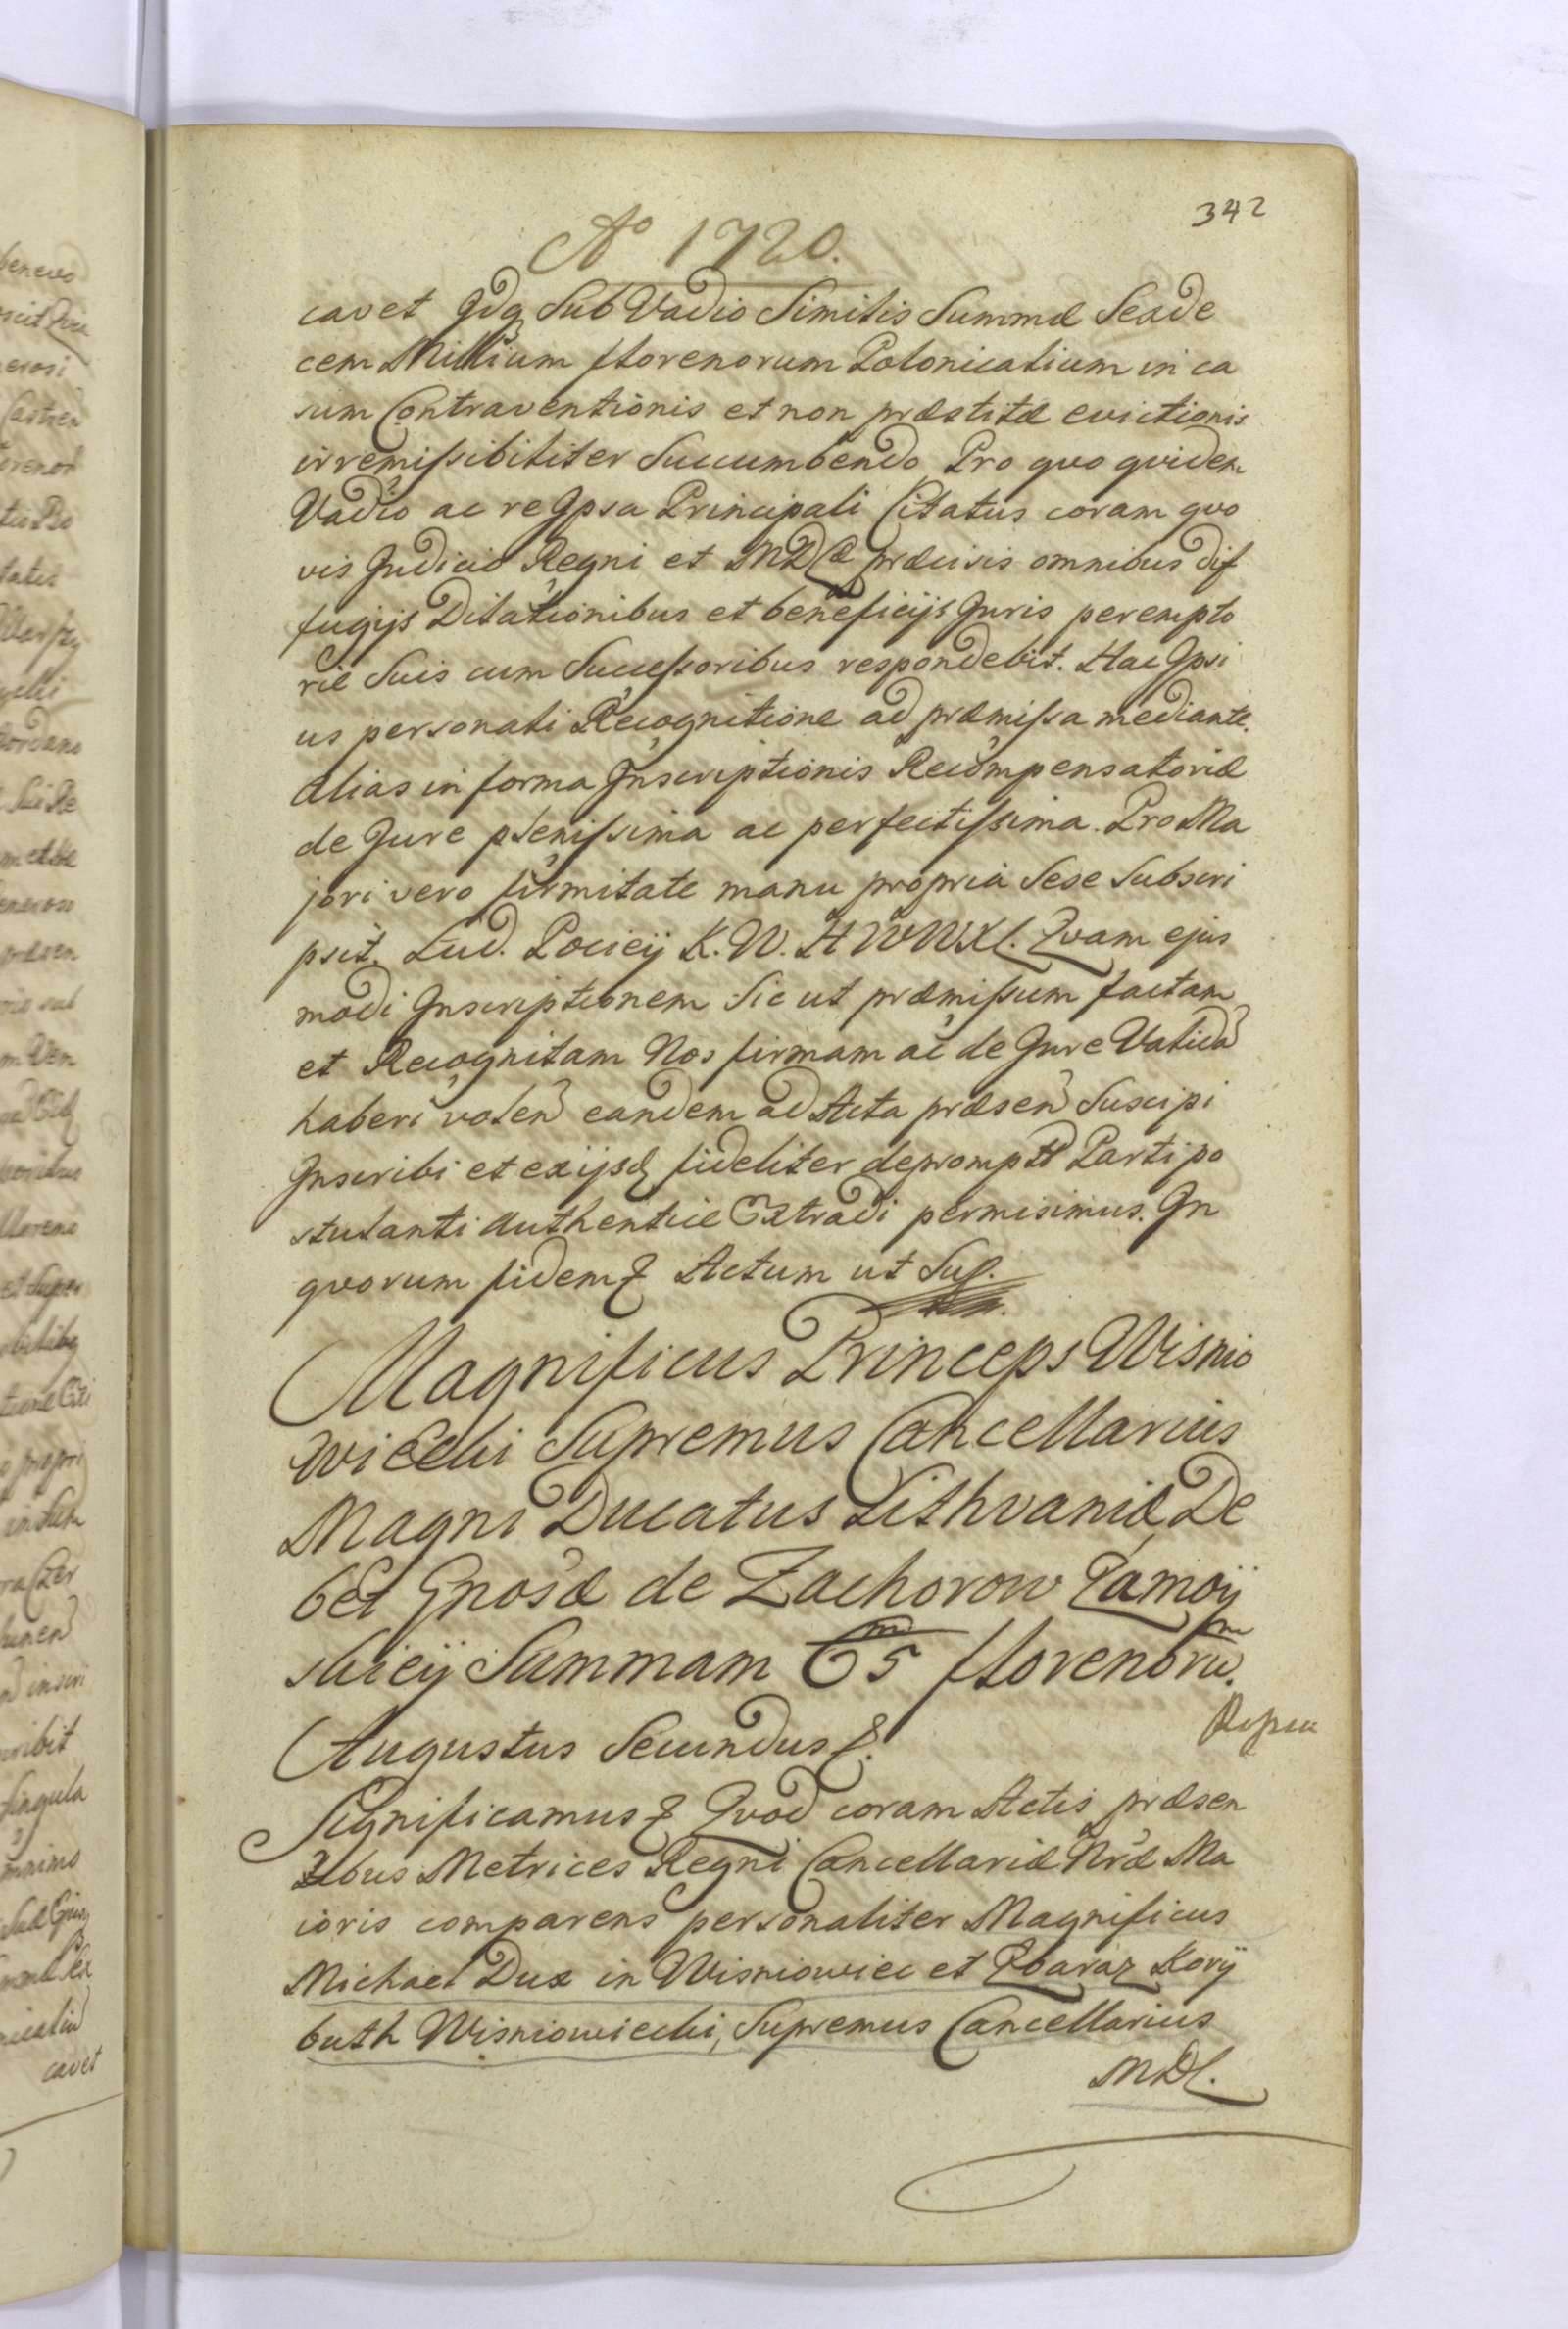 342
Aº 1720.
cavet Qdq Sub Vadio Similis Summæ Sexde
cem Millium florenorum Polonicalium in ca
sum Contraventionis et non præstitæ evictionis
irremissibiliter Succumbendo Pro qvo qvidem
Vadio ac re Ipsa Principali Citatus coram qvo
vis Judicio Regni et MDL præcisis omnibus dif
fugijs Dilationibus et beneficijs Juris perempto
rie Suis cum Successoribus respondebit. Hac Ipsi
us personali Recognitione ad præmissa mediante.
Alias in forma Inscriptionis Recompensatoriæ
de Jure plenissima ac perfectissima. Pro Ma
jori vero firmitate manu propria Sese Subscri
psit. Lud. Pociey K. W. H W WXL. Qvam ejus
modi Inscriptionem Sic ut præmissum factam
et Recognitam Nos firmam ac de Jure Validã
haberi volen eandem ad Acta præsen Suscipi
Inscribi et ex ijsd fideliter depromptã Parti po
stulanti authentice Extradi permisimus. In
qvorum fidem & Actum ut Sup.
Magnificus Princeps Wisnio
wiecki Supremus Cancellarius
Magni Ducatus Lithvaniæ De
bet Gnosæ de Zachorow Zamoy
skiey Summam 65 m florenorum.
Augustus Secundus &.
Significamus & Qvod coram Actis præsen
tibus Metrices Regni Cancellariæ Nræ Ma
ioris comparens personaliter Magnificus
Michael Dux in Wisniowiec et Zbaraz Kory
buth Wisniowiecki, Supremus Cancellarius
MDL.